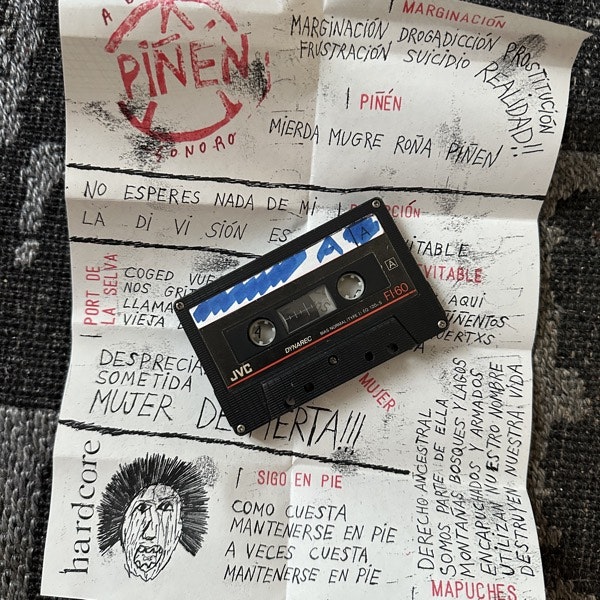 A
PIÑÉN
SONORO
MARGINACIÓN
MARGINACIÓN DROGADICCIÓN PROSTITUCIÓN
FRUSTRACIÓN SUICIDIO REALIDAD!!
PIÑÉN
MIERDA MUGRE ROÑA PIÑEN
NO ESPERES NADA DE MI
LA DI VI SIÓN ES
VITABLE
EVITABLE
PORT DE
LA SELVA
COGED VUE
NOS GRIT
LLAMA
VIEJA
AQUI
DESPRECIA
SOMETIDA
MUJER DESPIERTA!!!
MUJER
A
A
JVC
DYNAREC
BIAS NORMAL
FI 60
hardcore
SIGO EN PIE
COMO CUESTA
MANTENERSE EN PIE
A VECES CUESTA
MANTENERSE EN PIE
DERECHO ANCESTRAL
SOMOS PARTE DE ELLA
MONTAÑAS BOSQUES Y LAGOS
ENCAPUCHADOS Y ARMADOS
UTILIZAN NUESTRO NOMBRE
DESTRUYEN NUESTRA VIDA
MAPUCHES